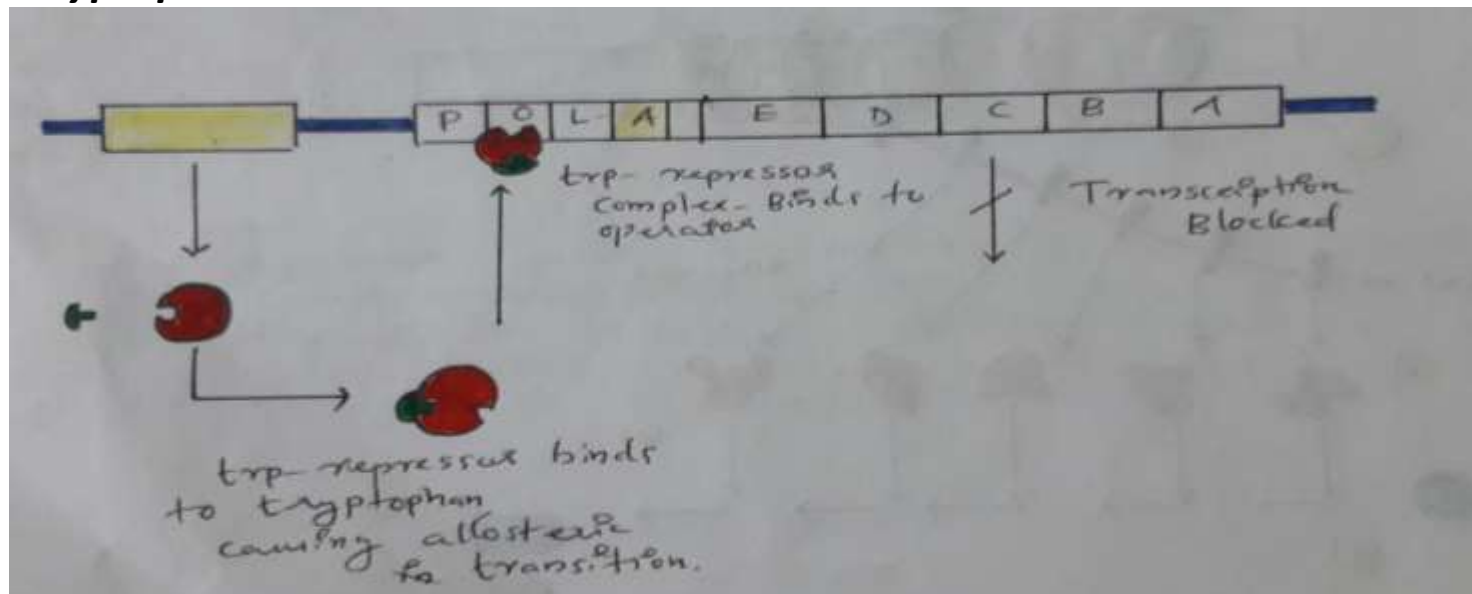 P O L A E D C B A
trp-repressor
complex-Binds to
operator
Transcription
Blocked
trp-repressor binds
to tryptophan
causing allosteric
transition.